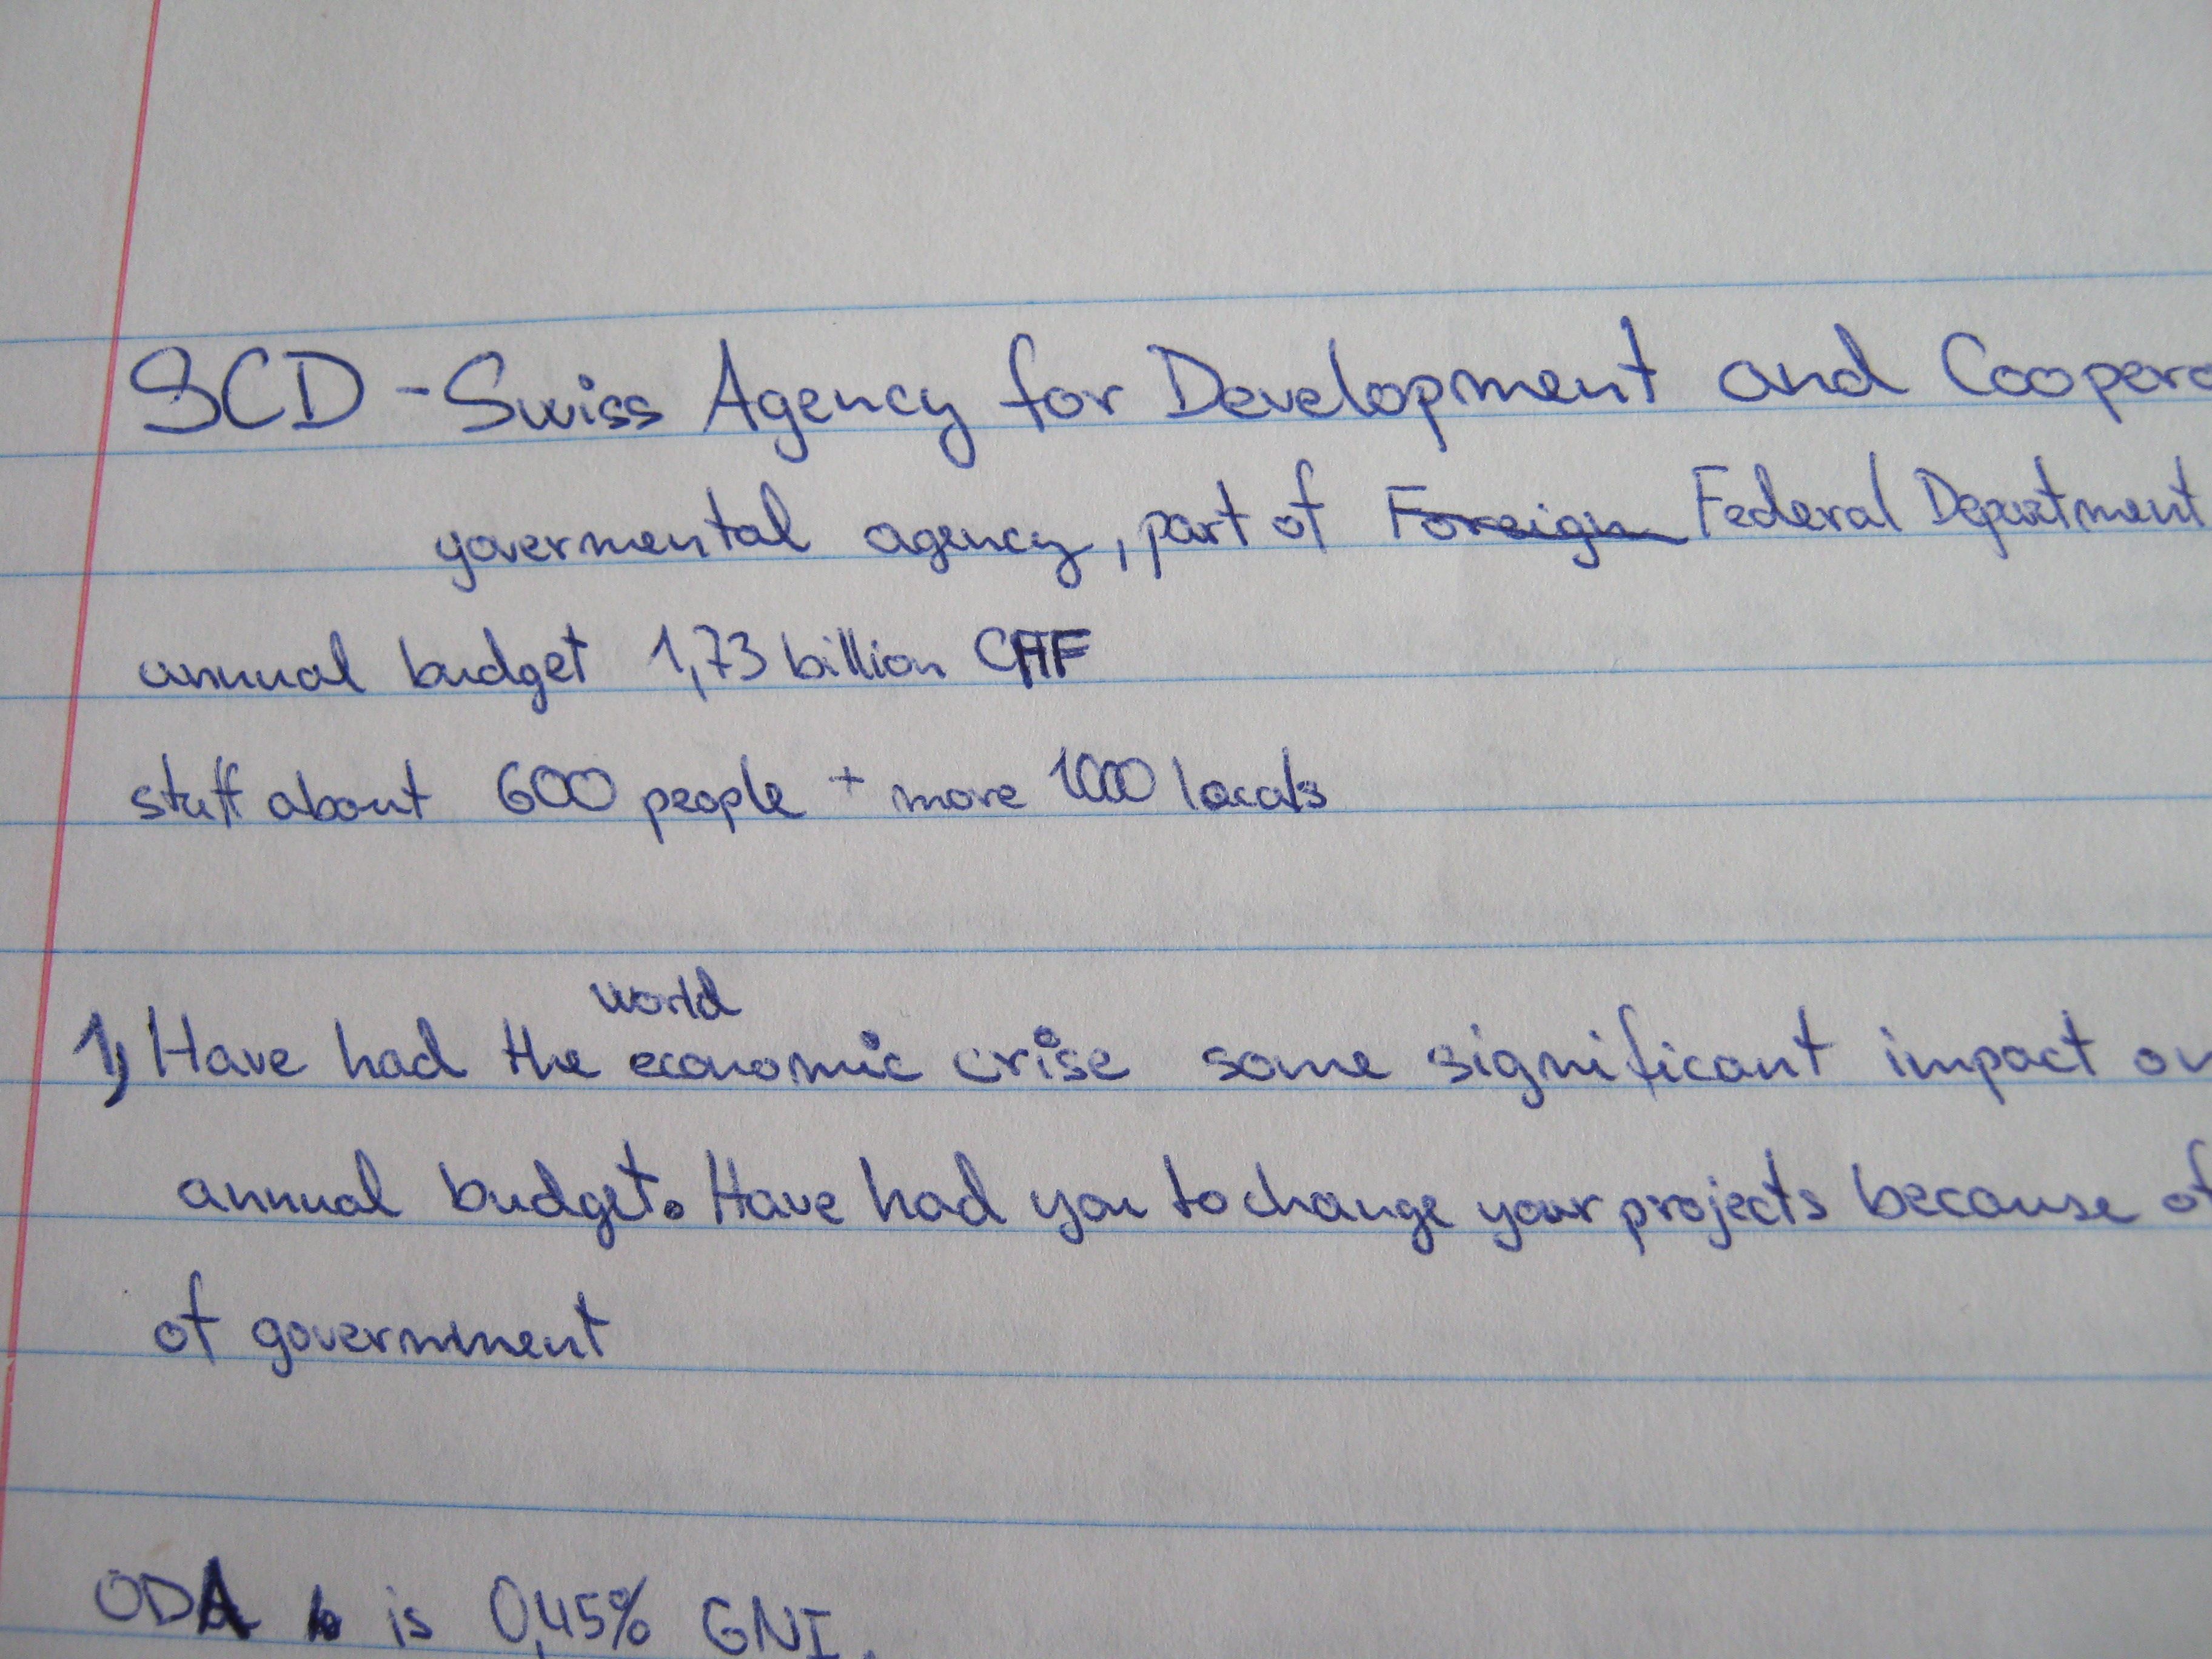 SCD - Swiss Agency for Development and Coopera
govermental agency, part of Foreign Federal Department
annual budget 1,73 billion CHF
stuff about 600 people + more 1000 locals
world
1, Have had the economic crise some significant impact on
annual budget. Have had you to change your projects because of
of government
ODA is 0,45% GNI.